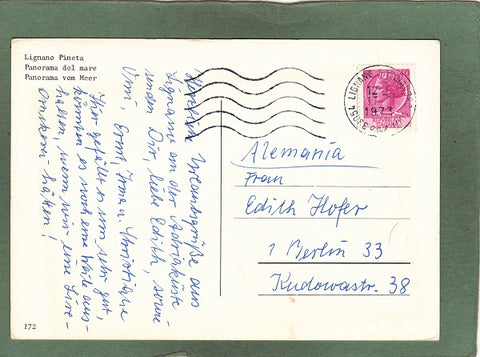 Lignano Pineta
Panorama del mare
Panorama vom Meer
Herzliche Urlaubsgrüße aus
Lignano an der Adriaküste
senden Dir, liebe Edith,
Ernst,
Hier gefällt es uns sehr gut,
können es noch eine Weile aus-
halten, wenn wir eine
hätten!
LIGNANO
12
1973
Alemania
Frau
Edith Hofer
1 Berlin 33
Kudowastr. 38
172